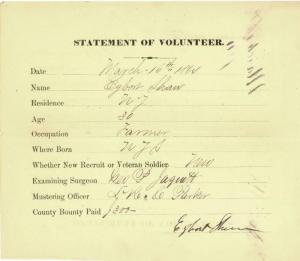 STATEMENT OF VOLUNTEER.
Date March 16th 1864
Name Egbert Shaw
Residence N Y
Age 30
Occupation Farmer
Where Born N Y S
Whether New Recruit or Veteran Soldier. New
Examining Surgeon Geo P.
Mustering Officer Parker
County Bounty Paid $300-
Egbert Shaw